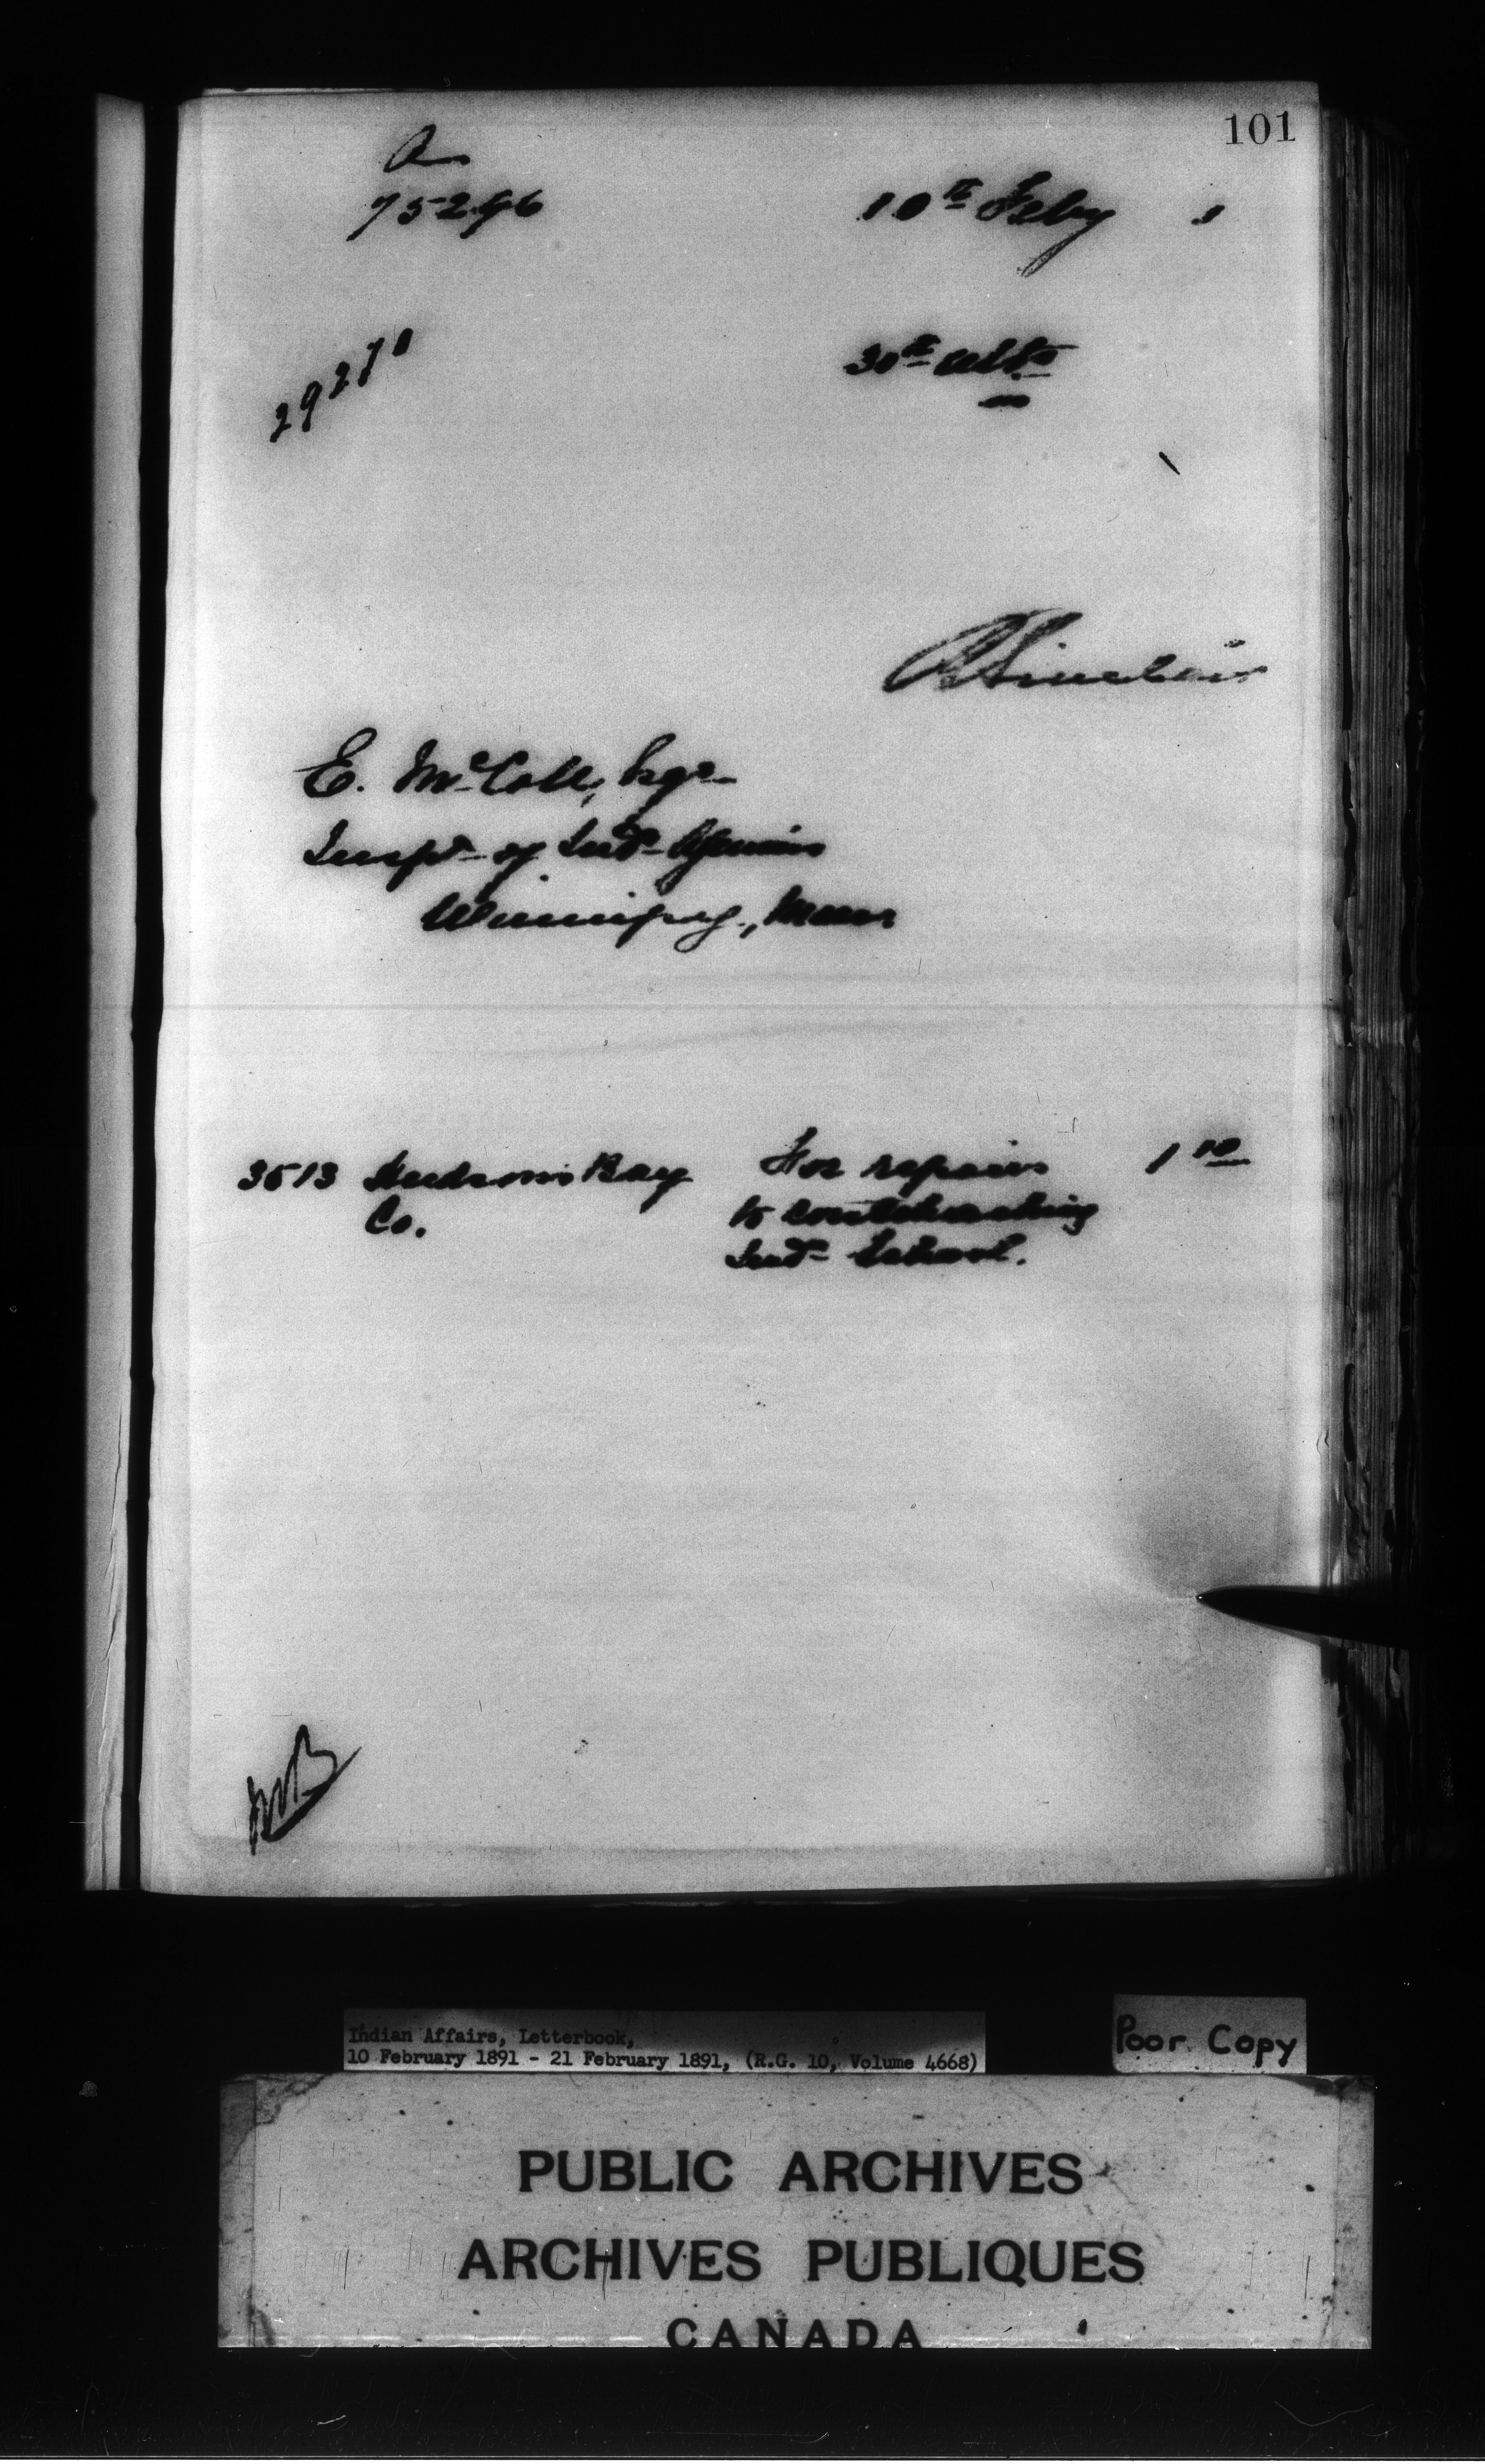 101
A
75296
10th Feby 1
29271
30th ulto
R Sinclair
E. McColl, Esqr
Inspr of Indn Agencies
Winnipeg, Man
3513 Hudson's Bay For repairs 1 10
Co. to
Indn School.
Indian Affairs, Letterbook,
10 February 1891 - 21 February 1891, (R.G. 10, Volume 4668)
Poor Copy
PUBLIC ARCHIVES
ARCHIVES PUBLIQUES
CANADA